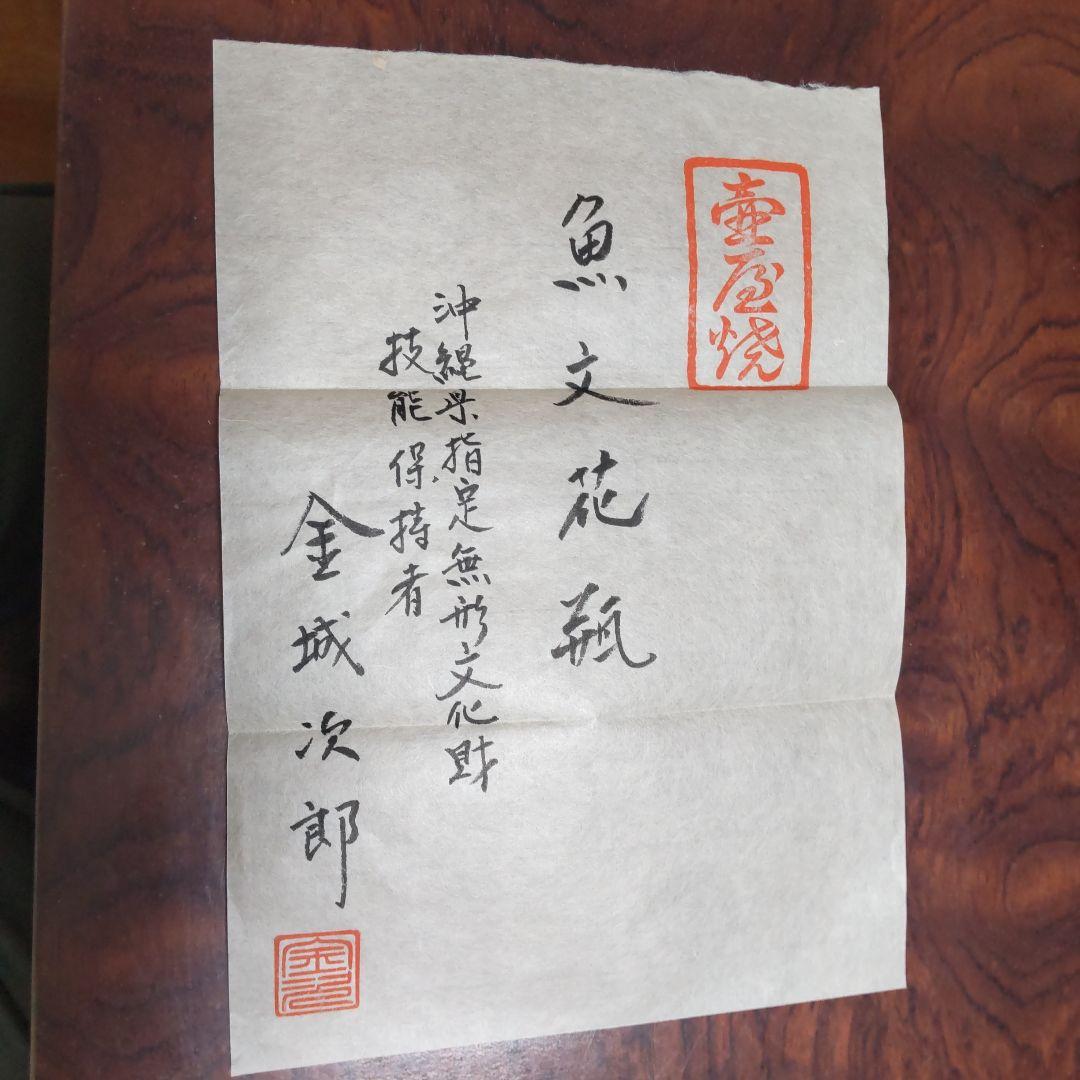 壺屋焼
魚文花瓶
沖縄県指定無形文化財
技能保持者
金城次郎